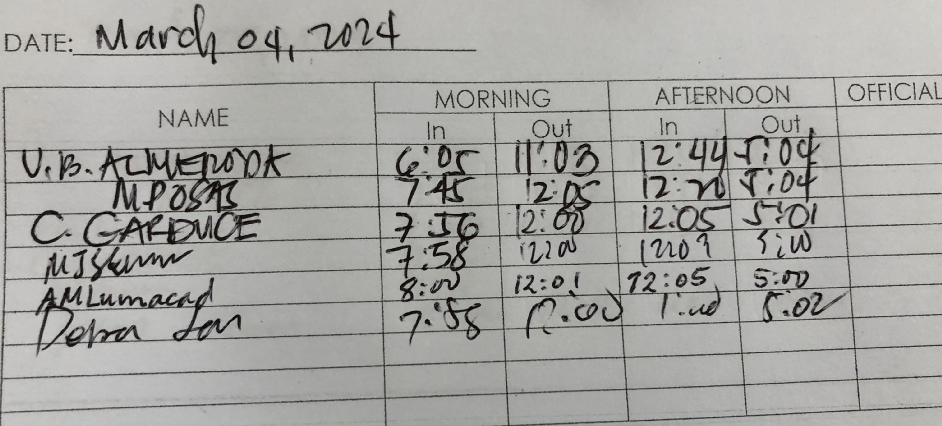 DATE: March 04, 2024
NAME MORNING AFTERNOON OFFICIAL
In Out In Out
V.B. ALMERODA 6:05 11:03 12:44 5:04
M POSAS 7:45 12:05 12:20 5:04
C. GARDUCE 7:56 12:00 12:05 5:01
7:58 1200
AMLumacad 8:00 12:01 12:05 5:00
7:58 12:00 1:00 5:02